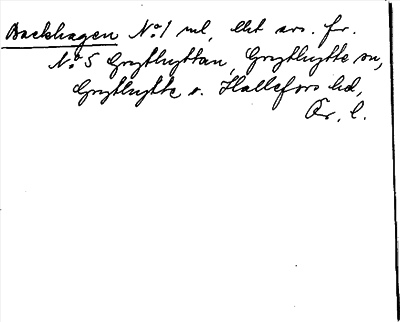 Backhagen No 1 ml, Ekt avs. fr.
No 5 Grythyttan, Grythytte sn,
Grythytte o. Hällefors hd,
Ör. l.